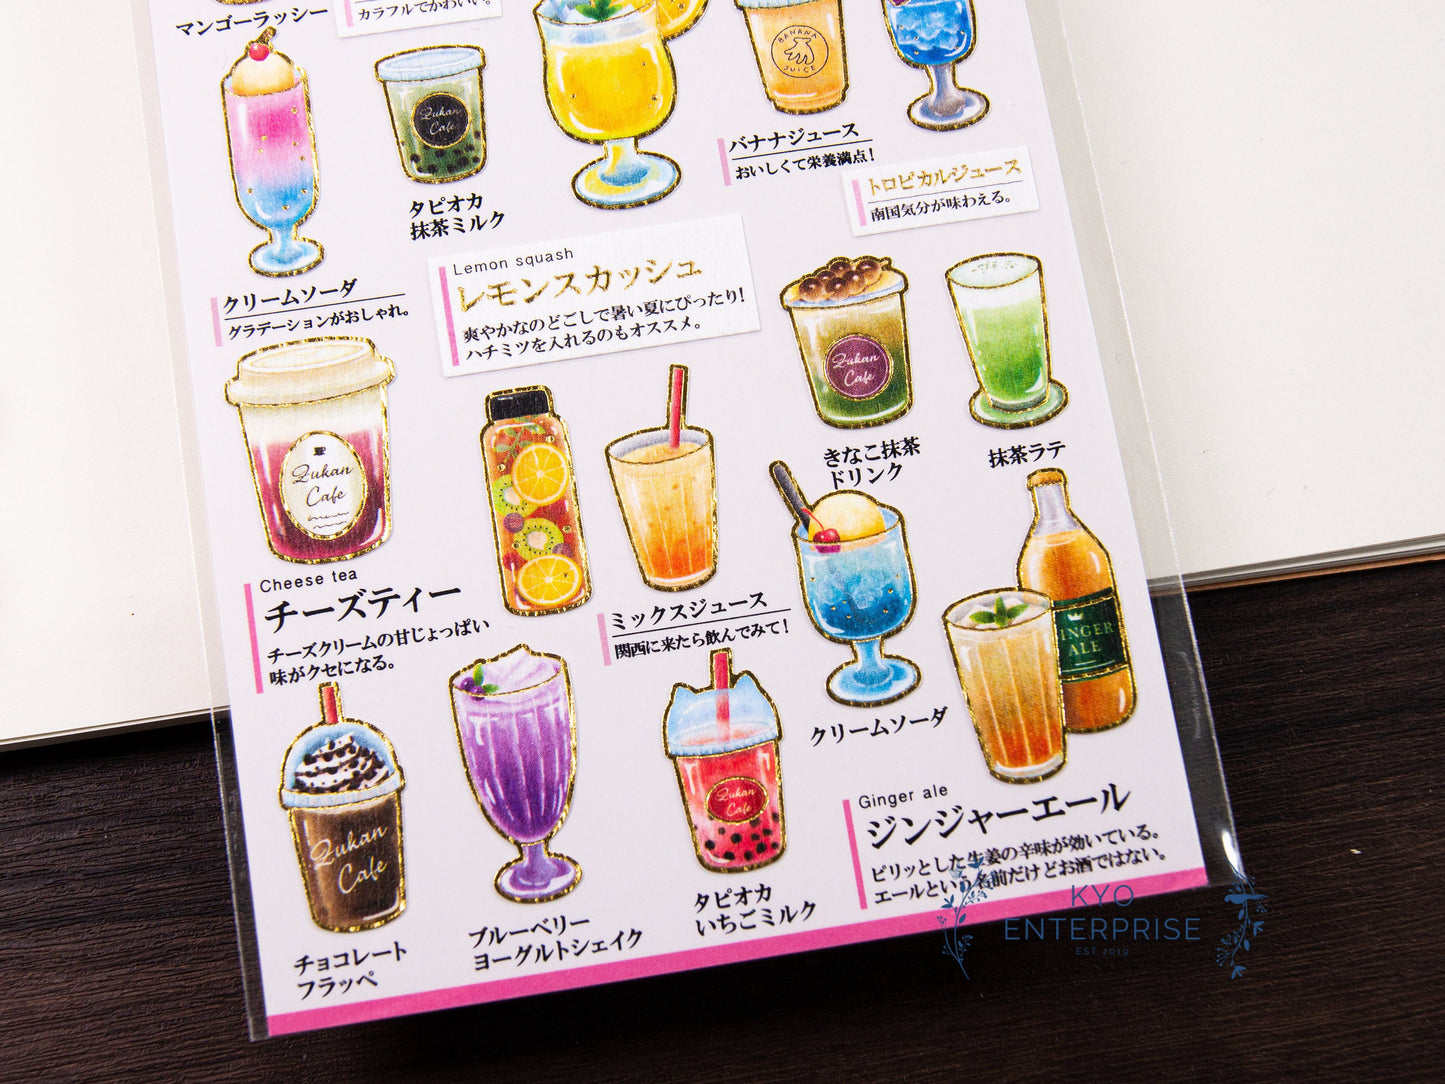 マンゴーラッシー
カラフルでかわいい。
BANANA
JUICE
Zukan
Cafe
タピオカ
抹茶ミルク
バナナジュース
おいしくて栄養満点!
トロピカルジュース
南国気分が味わえる。
クリームソーダ
グラデーションがおしゃれ。
Lemon squash
レモンスカッシュ
爽やかなのどごしで暑い夏にぴったり!
ハチミツを入れるのもオススメ。
Zukan
Cafe
きなこ抹茶
ドリンク
抹茶ラテ
Zukan
Cafe
Cheese tea
チーズティー
チーズクリームの甘じょっぱい
味がクセになる。
ミックスジュース
関西に来たら飲んでみて!
クリームソーダ
GINGER
ALE
Ginger ale
ジンジャーエール
ピリッとした生姜の辛味が効いている。
エールという名前だけどお酒ではない。
Zukan
Cafe
チョコレート
フラッペ
ブルーベリー
ヨーグルトシェイク
Zukan
Cafe
タピオカ
いちごミルク
KYO
ENTERPRISE
EST 2019